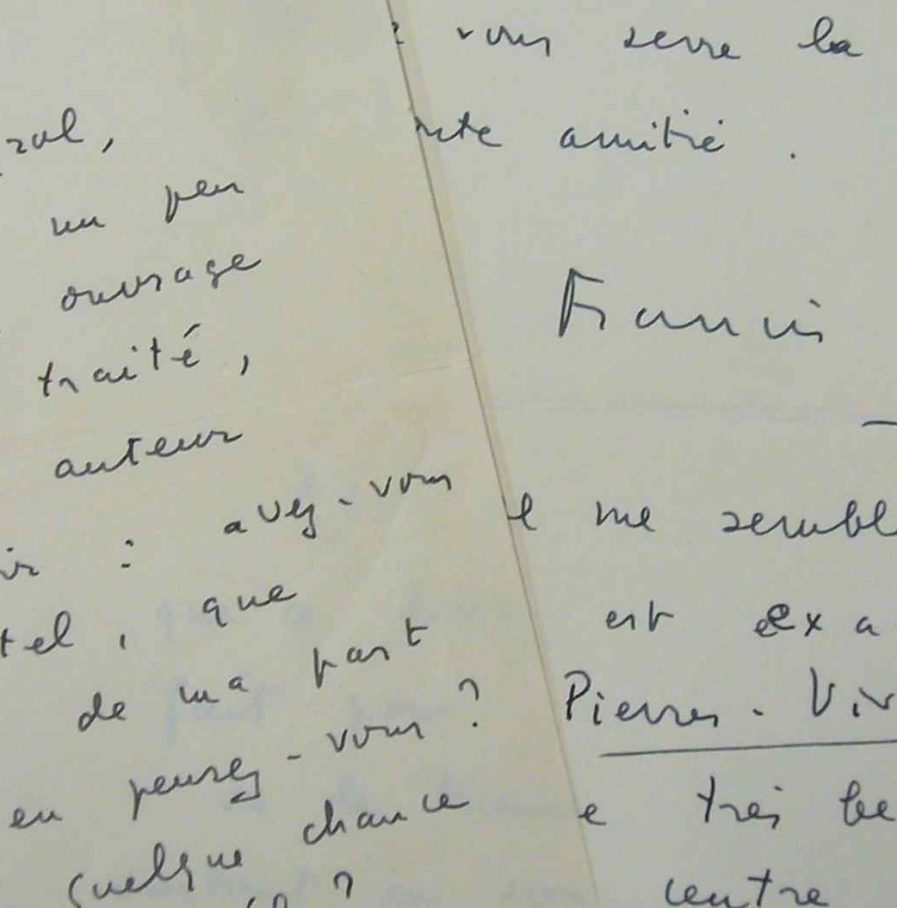 zal,
un peu
ouvrage
traité,
auteur
ir : avez-vous
tel, que
de ma part
en pensez-vous ?
quelque chance
?
vous serre la
ute amitié.
Francis
l me sembl
est exa
Pierres-Viv
e très be
centre